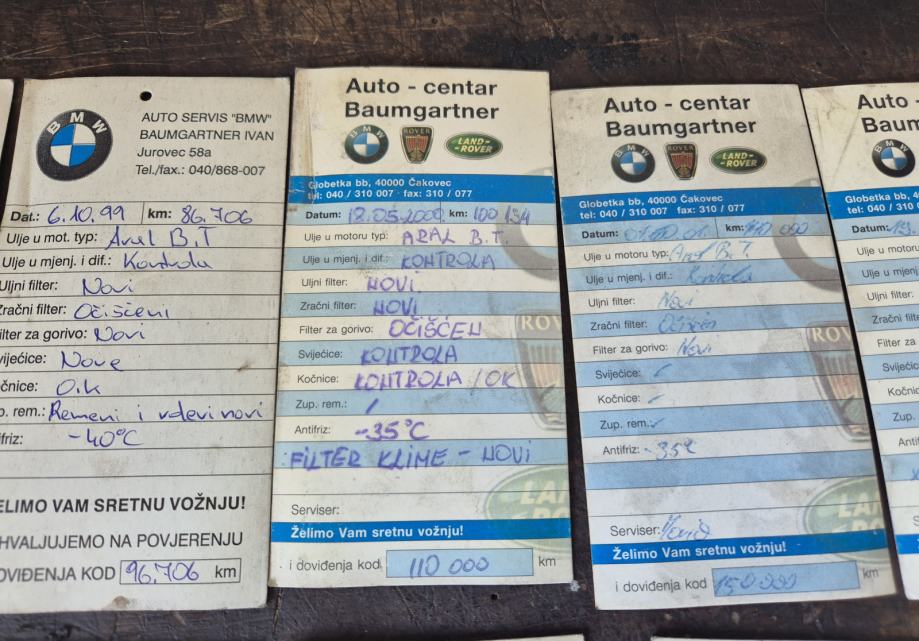 BMW
AUTO SERVIS "BMW"
BAUMGARTNER IVAN
Jurovec 58a
Tel./fax.: 040/868-007
Dat.: 6.10.99 km: 86.706
Ulje u mot. typ: Aral B.T
Ulje u mjenj. i dif.: Kontrola
Uljni filter: Novi
Zračni filter: Očišćeni
ilter za gorivo: Novi
vijećice: Nove
očnice: O.k
p. rem.: Remeni i
novi
ifriz: -40°C
ELIMO VAM SRETNU VOŽNJU!
HVALJUJEMO NA POVJERENJU
OVIĐENJA KOD 96.706 km
Auto - centar
Baumgartner
BMW ROVER LAND-ROVER
Globetka bb, 40000 Čakovec
tel: 040 / 310 007 · fax: 310 / 077
Datum: km: 100 134
Ulje u motoru typ: ARAL B.T.
Ulje u mjenj. i dif.: KONTROLA
Uljni filter: NOVI.
Zračni filter: NOVI
Filter za gorivo: OČIŠĆEN
Svijećice: KONTROLA
Kočnice: KONTROLA / OK
Zup. rem.: /
Antifriz: -35°C
FILTER KLIME - NOVI
Serviser:
Želimo Vam sretnu vožnju!
i doviđenja kod 110 000 km
Auto - centar
Baumgartner
BMW ROVER LAND-ROVER
Globetka bb, 40000 Čakovec
tel: 040 / 310 007 · fax: 310 / 077
Datum: km:
Ulje u motoru typ: Aral B.T.
Ulje u mjenj. i dif.: Kontrola
Uljni filter: Novi
Zračni filter: Očišćen
Filter za gorivo: Novi
Svijećice:
Kočnice:
Zup. rem.:
Antifriz: -35°C
Serviser:
Želimo Vam sretnu vožnju!
i doviđenja kod km
Auto -
Baum
BMW
Globetka bb, 4
tel: 040 / 310
Datum:
Ulje u motoru
Ulje u mjenj.
Uljni filter:
Zračni filter:
Filter za
Svijećice
Kočnic
Zup.
Antif